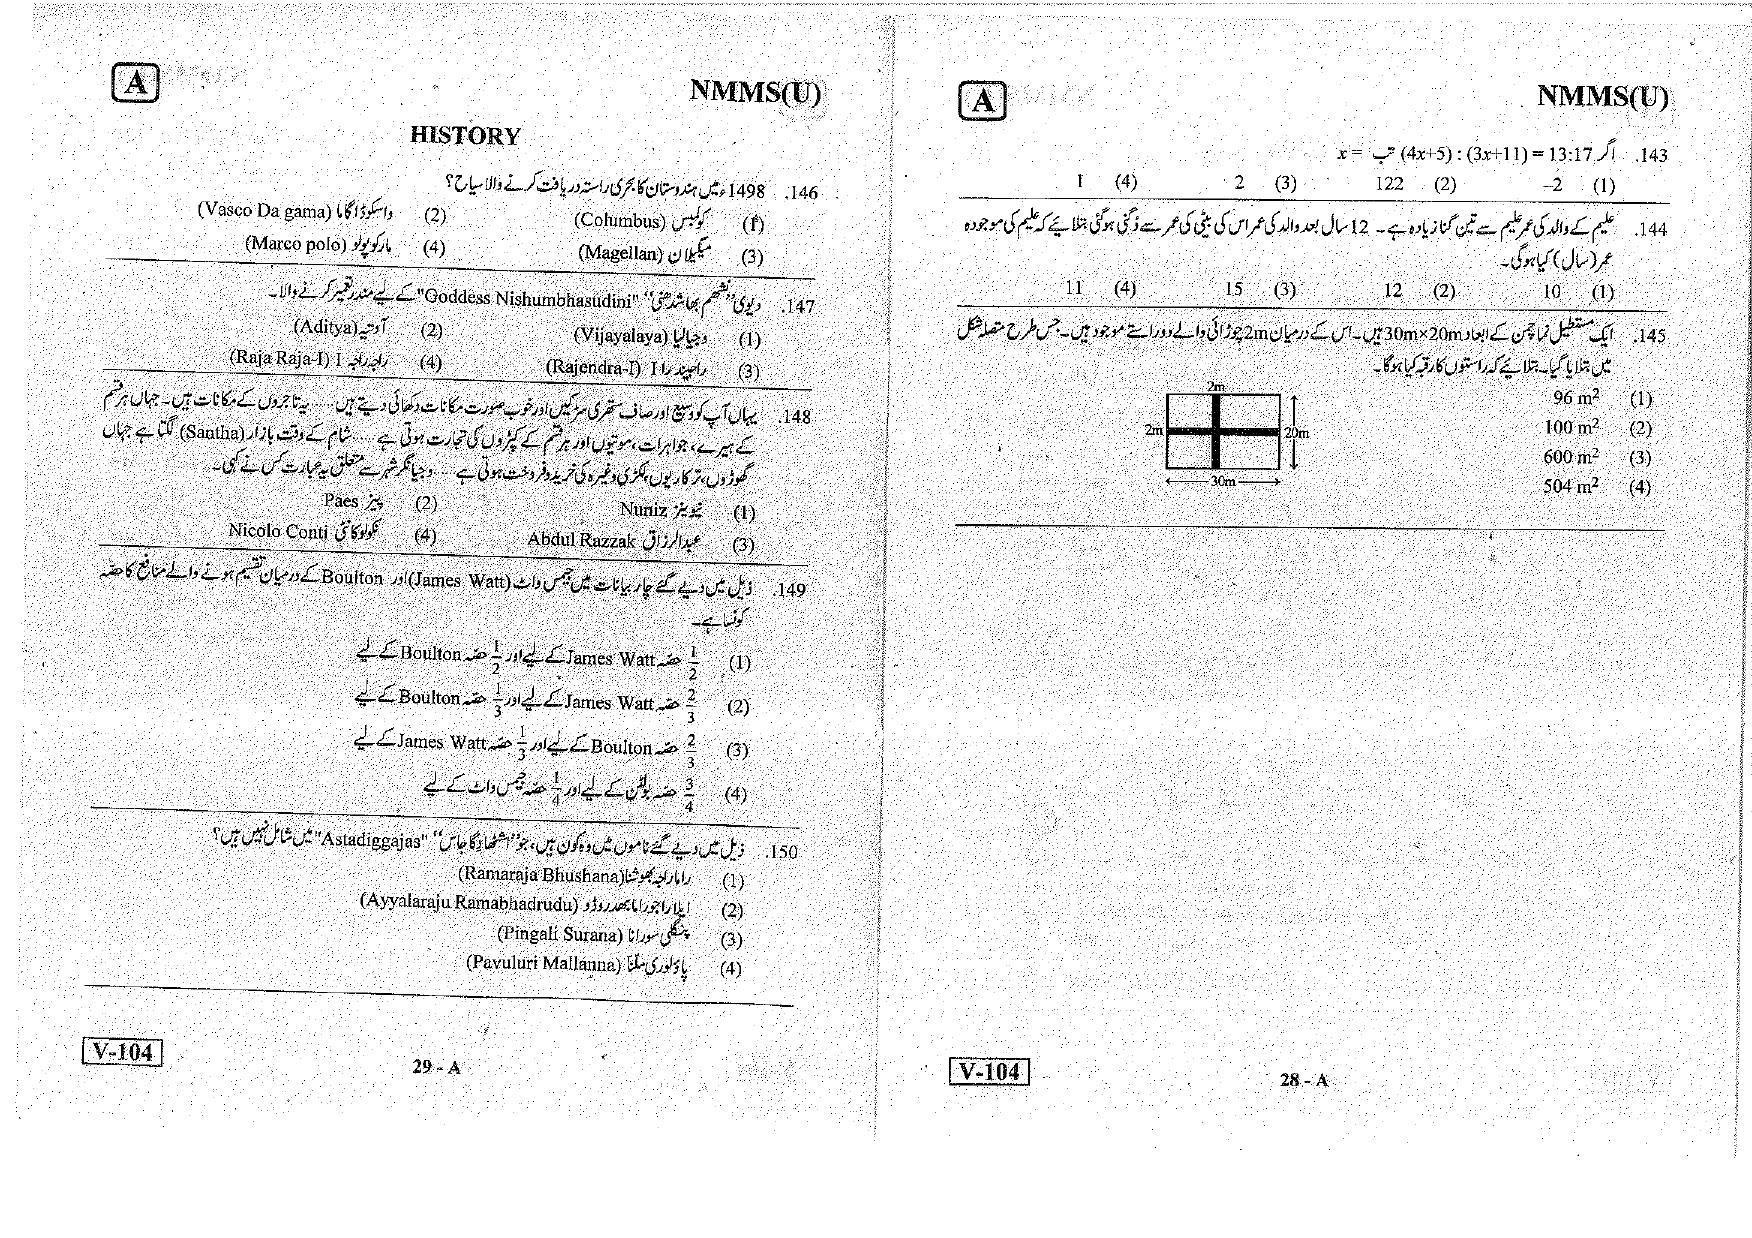 A
NMMS(U)
HISTORY
146. 1498ء میں ہندوستان کا بحری راستہ دریافت کرنے والا سیاح؟
(1) کولمبس (Columbus) (2) واسکوڈاگاما (Vasco Da gama)
(3) میگیلان (Magellan) (4) مارکوپولو (Marco polo)
147. دیوی "نشمبھا شدھنی" "Goddess Nishumbhasudini" کے لیے مندر تعمیر کرنے والا۔
(1) وجیالیا (Vijayalaya) (2) آدتیہ (Aditya)
(3) راجیندرا I (Rajendra-I) (4) راجہ راجہ I (Raja Raja-I)
148. یہاں آپ کو وسیع اور صاف ستھری سڑکیں اور خوب صورت مکانات دکھائی دیتے ہیں .... یہ تاجروں کے مکانات ہیں۔ جہاں ہر قسم
کے ہیرے، جواہرات، موتیوں اور ہر قسم کے کپڑوں کی تجارت ہوتی ہے .... شام کے وقت بازار (Santha) لگتا ہے جہاں
گھوڑوں، ترکاریوں، لکڑی وغیرہ کی خرید و فروخت ہوتی ہے .... وجیانگر شہر سے متعلق یہ عبارت کس نے کہی۔
(1) نیونیز Nuniz (2) پیز Paes
(3) عبدالرزاق Abdul Razzak (4) نکولوکانٹی Nicolo Conti
149. ذیل میں دیے گئے چار بیانات میں جیمس واٹ (James Watt) اور Boulton کے درمیان تقسیم ہونے والے منافع کا حصہ
کونسا ہے۔
(1) 1/2 حصہ James Watt کے لیے اور 1/2 حصہ Boulton کے لیے
(2) 2/3 حصہ James Watt کے لیے اور 1/3 حصہ Boulton کے لیے
(3) 2/3 حصہ Boulton کے لیے اور 1/3 حصہ James Watt کے لیے
(4) 3/4 حصہ بولٹن کے لیے اور 1/4 حصہ جیمس واٹ کے لیے
150. ذیل میں دیے گئے ناموں میں وہ کون ہیں، جو "اشٹھادگاجاس" "Astadiggajas" میں شامل نہیں ہیں؟
(1) راماراجہ بھوشنا (Ramaraja Bhushana)
(2) ایلاراجو رامابھدروڈو (Ayyalaraju Ramabhadrudu)
(3) پنگلی سورانا (Pingali Surana)
(4) پاولوری ملنا (Pavuluri Mallanna)
V-104
29 - A
A
NMMS(U)
143. اگر (4x+5) : (3x+11) = 13:17 تب x =
(1) –2 (2) 122 (3) 2 (4) 1
144. علیم کے والد کی عمر علیم سے تین گنا زیادہ ہے۔ 12 سال بعد والد کی عمر اس کی بیٹی کی عمر سے دُگنی ہوگئی بتلائیے کہ علیم کی موجودہ
عمر (سال) کیا ہوگی۔
(1) 10 (2) 12 (3) 15 (4) 11
145. ایک مستطیل نما چمن کے ابعاد 30m×20m ہیں۔ اس کے درمیان 2m چوڑائی والے دو راستے موجود ہیں۔ جس طرح متصلہ شکل
میں بتلایا گیا۔ بتلائیے کہ راستوں کا رقبہ کیا ہوگا۔
(1) 96 m²
(2) 100 m²
(3) 600 m²
(4) 504 m²
2m
2m
20m
30m
V-104
28 - A